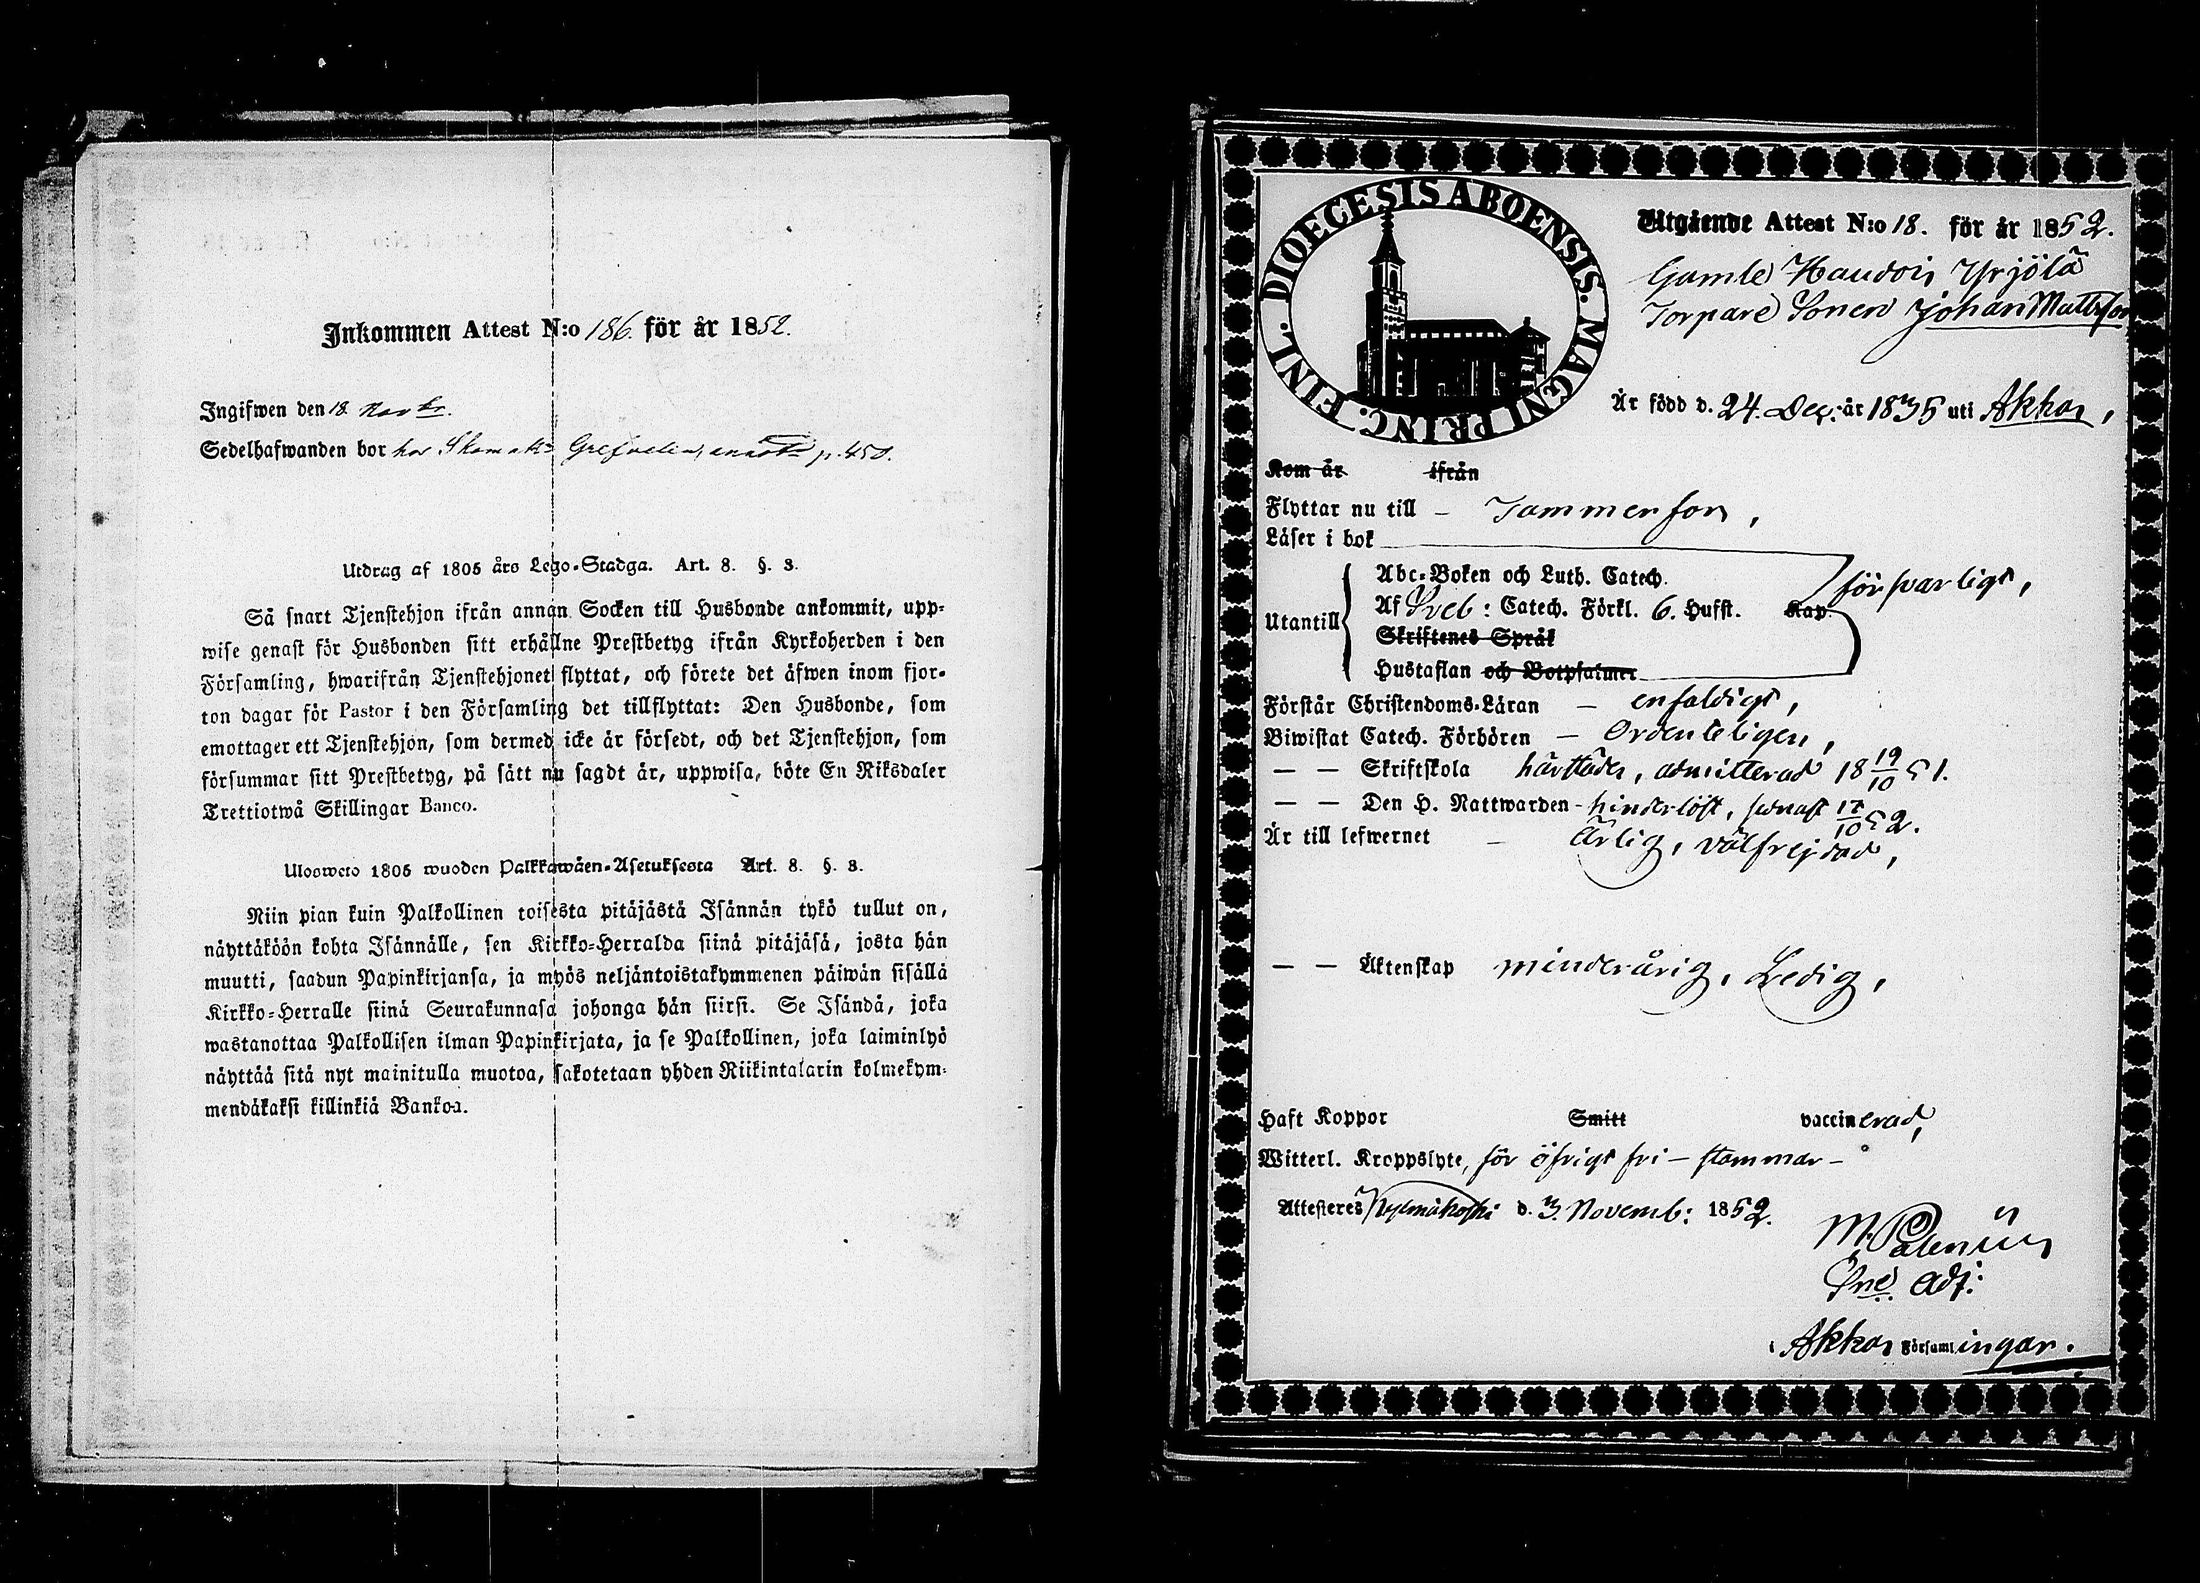 Inkommen Attest N:o 186. för år 1852.
Ingifwen den 18. Novbr.
Sedelhafwanden bor hos Skomak: Grefvelin, p. 450.
Utdrag af 1805 års Lego-Stadga. Art. 8. §. 3.
Så snart Tjenstehjon ifrån annan Socken till Husbonde ankommit, upp-
wise genast för Husbonden sitt erhållne Prestbetyg ifrån Kyrkoherden i den
Församling, hwarifrån Tjenstehjonet flyttat, och förete det äfwen inom fjor-
ton dagar för Pastor i den Församling det tillflyttat: Den Husbonde, som
emottager ett Tjenstehjon, som dermed icke är försedt, och det Tjenstehjon, som
försummar sitt Prestbetyg, på sätt nu sagdt är, uppwisa, böte En Riksdaler
Trettiotwå Skillingar Banco.
Ulosweto 1805 wuoden Palkkawäen-Asetuksesta Art. 8. §. 3.
Niin pian kuin Palkollinen toisesta pitäjästä Isännän tykö tullut on,
näyttäköön kohta Isännälle, sen Kirkko-Herralda siinä pitäjäsä, josta hän
muutti, saadun Papinkirjansa, ja myös neljäntoistakymmenen päiwän sisällä
Kirkko-Herralle siinä Seurakunnasa johonga hän siirsi. Se Isändä, joka
wastanottaa Palkollisen ilman Papinkirjata, ja se Palkollinen, joka laiminlyö
näyttää sitä nyt mainitulla muotoa, sakotetaan yhden Riikintalarin kolmekym-
mendäkaksi killinkiä Bankoa.
DIOECESIS ABOENSIS. MAGNI PRINC. FINL.
Utgående Attest N:o 18. för år 1852.
Gamle Haudois Yrjölä
Torpare Sonen Johan Mattsson
Är född d. 24. Dec: år 1835 uti Akkas,
Kom år ifrån
Flyttar nu till – Tammerfors,
Läser i bok
Abc-Boken och Luth. Catech.
Utantill Af Sveb: Catech. Förkl. 6. Hufst. Kap. försvarligt,
Skriftenes Språk
Hustaflan och Botpsalmer
Förstår Christendoms-Läran – enfaldigt,
Biwistat Catech. Förhören – Ordenteligen,
— — Skriftskola härstädes, admitterad 18 19/10 51.
— — Den H. Nattwarden - hinderlöst, senast 17/10 52.
Är till lefwernet – Ärlig, välfrejdad,
— — Äktenskap minderårig, Ledig,
Haft Koppor Smitt vaccinerad,
Witterl. Kroppslyte, för öfrigt fri – stammar –
Attesteres Kylmäkoski d. 3. Novemb: 1852.
M. Palenius
Sne Adj:
i Akkas Församlingar.